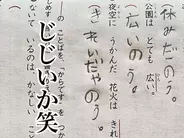 休みだのう。
公園は とても 広い。
きれいだのう。
夜空に うかんだ 花火は きれ
のことばを、「からです」を つか
ているのは かなしい こ
じじいか笑